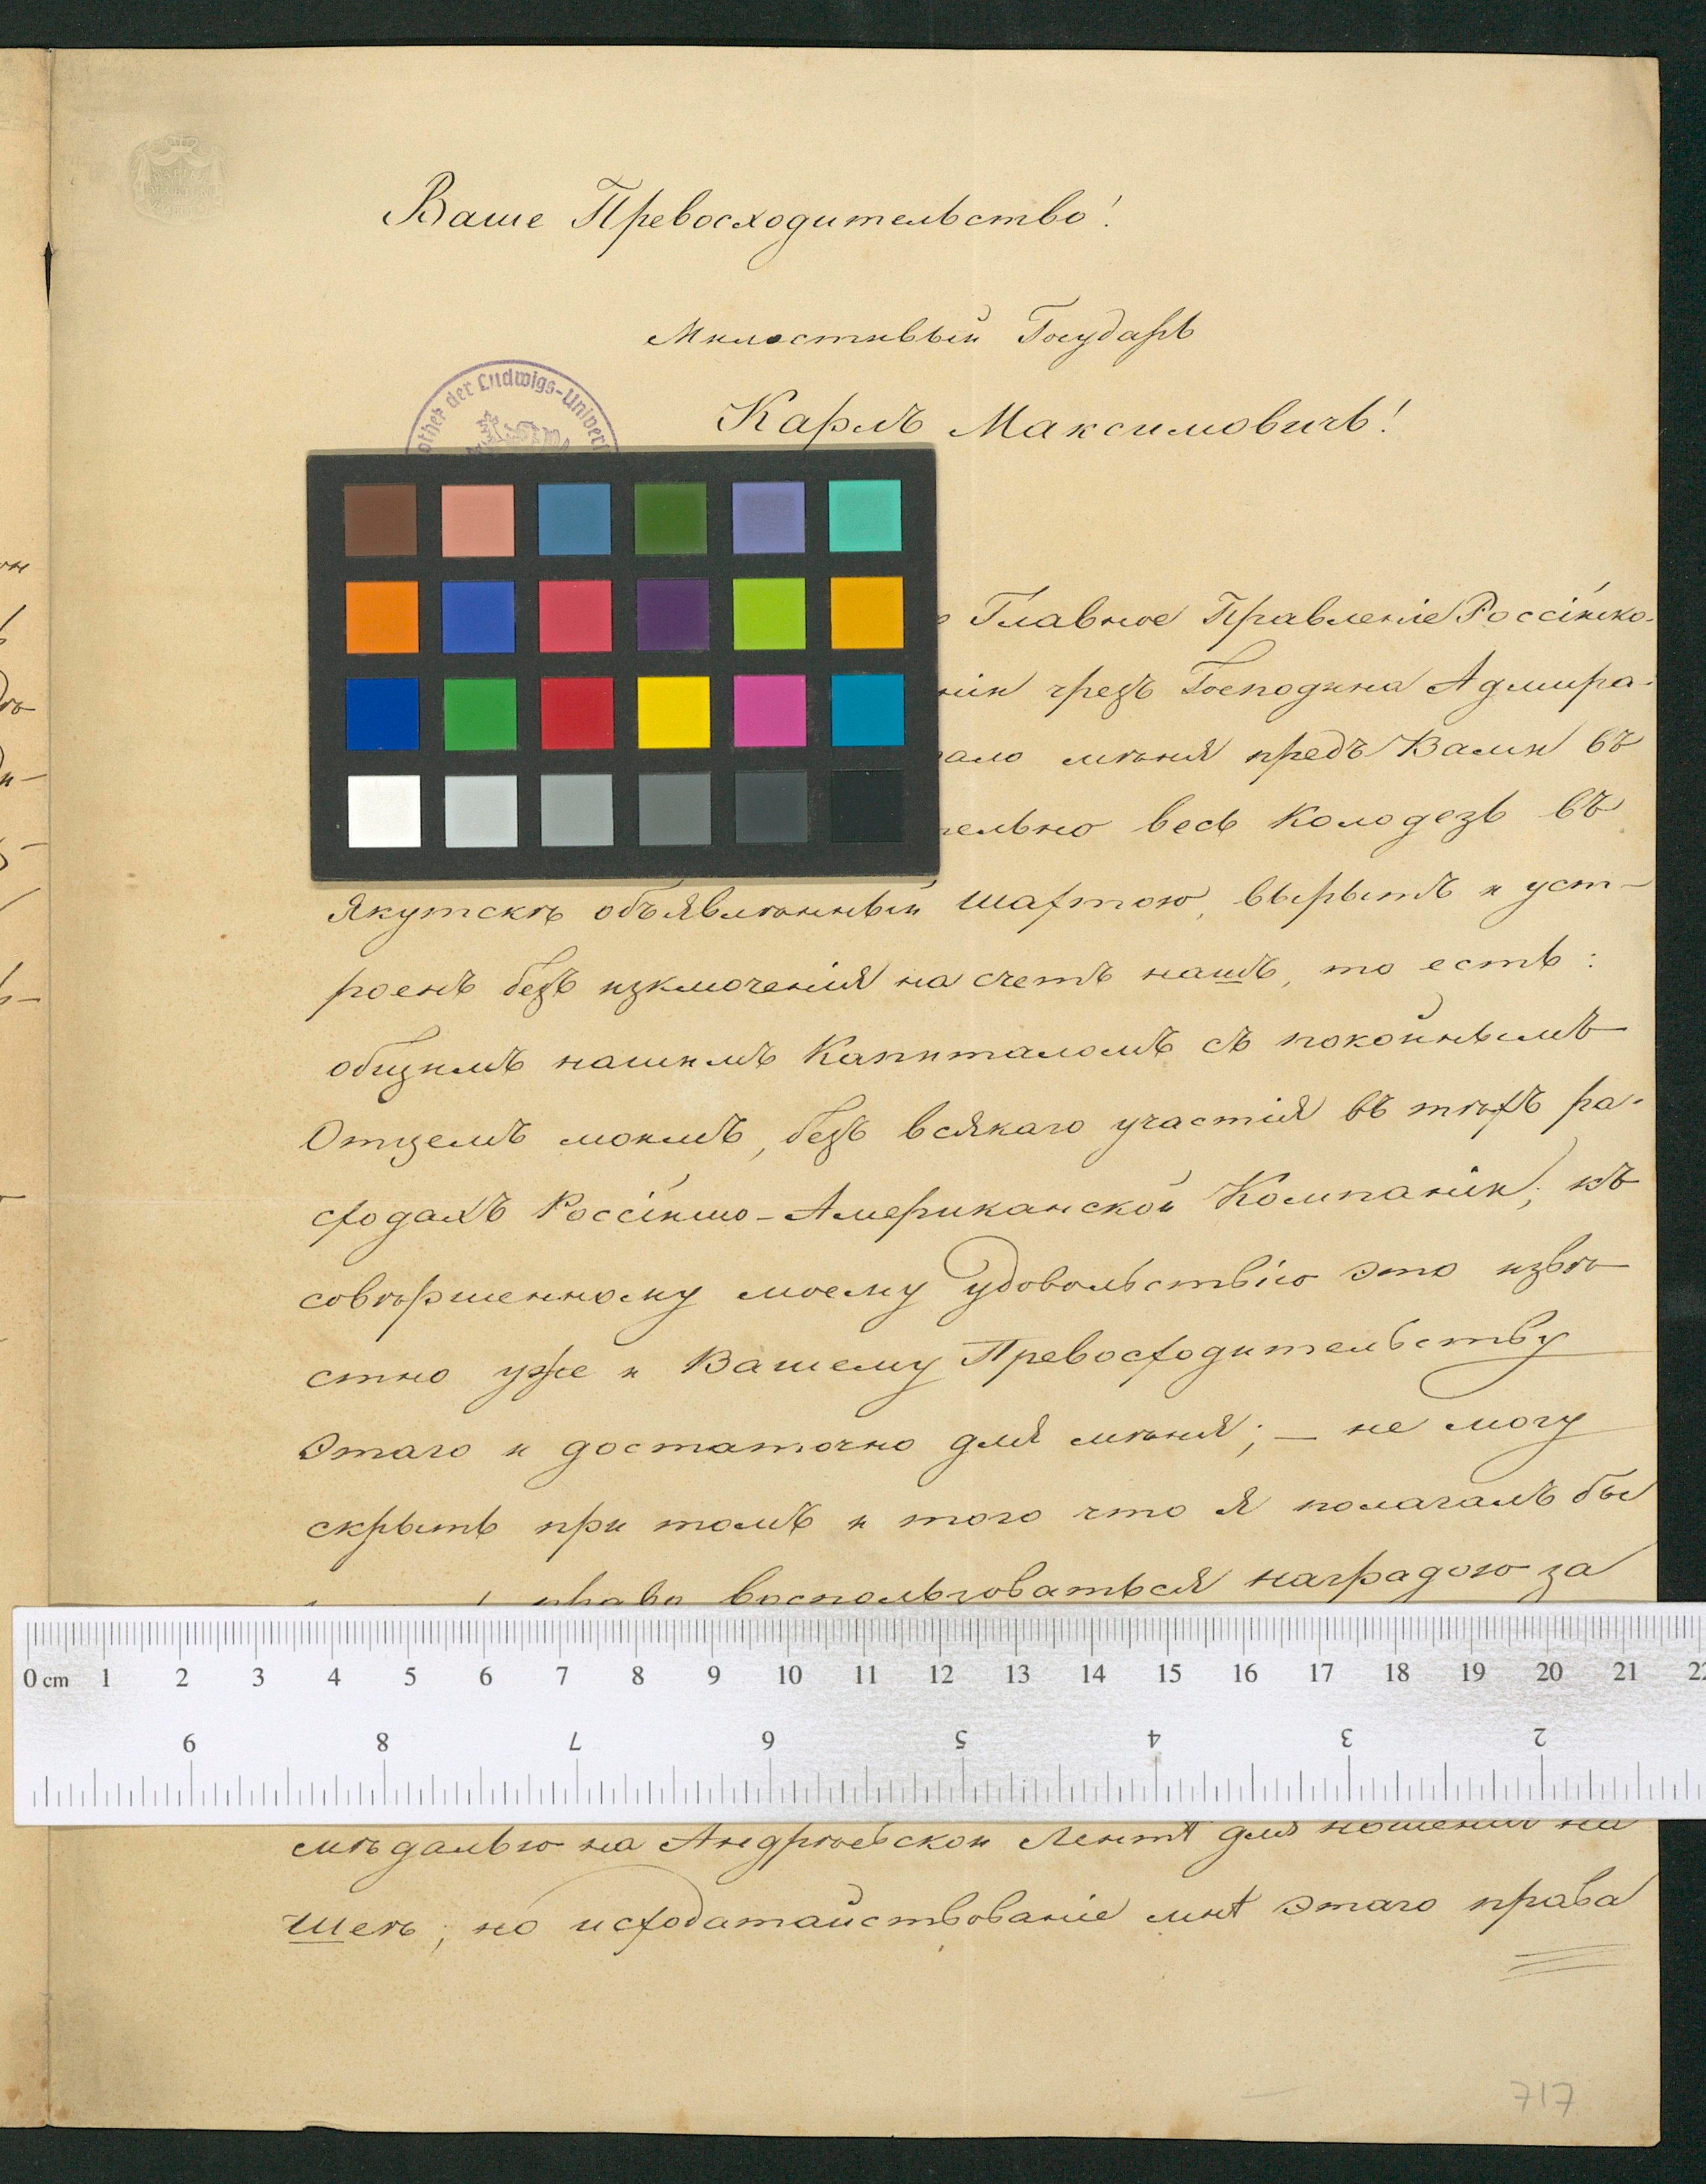 Ваше Превосходительство!
Милостивый Государь
Карлъ Максимовичь!
other der Ludwigs-Univers
Главное Правленіе Россійско-
чрезъ Господина Адмира-
мѣня предъ Вами въ
весь колодезь въ
Якутскѣ объявлѣнный шахтою, вырытъ и уст-
роенъ безъ изключенія на счетъ нашъ, то есть:
общимъ нашимъ Капиталомъ съ покойнымъ
Отцемъ моимъ, безъ всякаго участія въ тѣхъ ра-
сходахъ Россійско-Американской Компаніи; къ
совѣршенному моему удовольствію это извѣ-
стно уже и Вашему Превосходительству
этаго и достаточно для мѣня; – не могу
скрыть при томъ и того что я полагалъ бы
право воспользоваться наградою за
0 cm 1 2 3 4 5 6 7 8 9 10 11 12 13 14 15 16 17 18 19 20 21 22
9 8 7 6 5 4 3 2
мѣдалью на Андрѣевской Лентѣ для ношенія на
шеѣ; но исходатайствованіе мнѣ этаго права
717